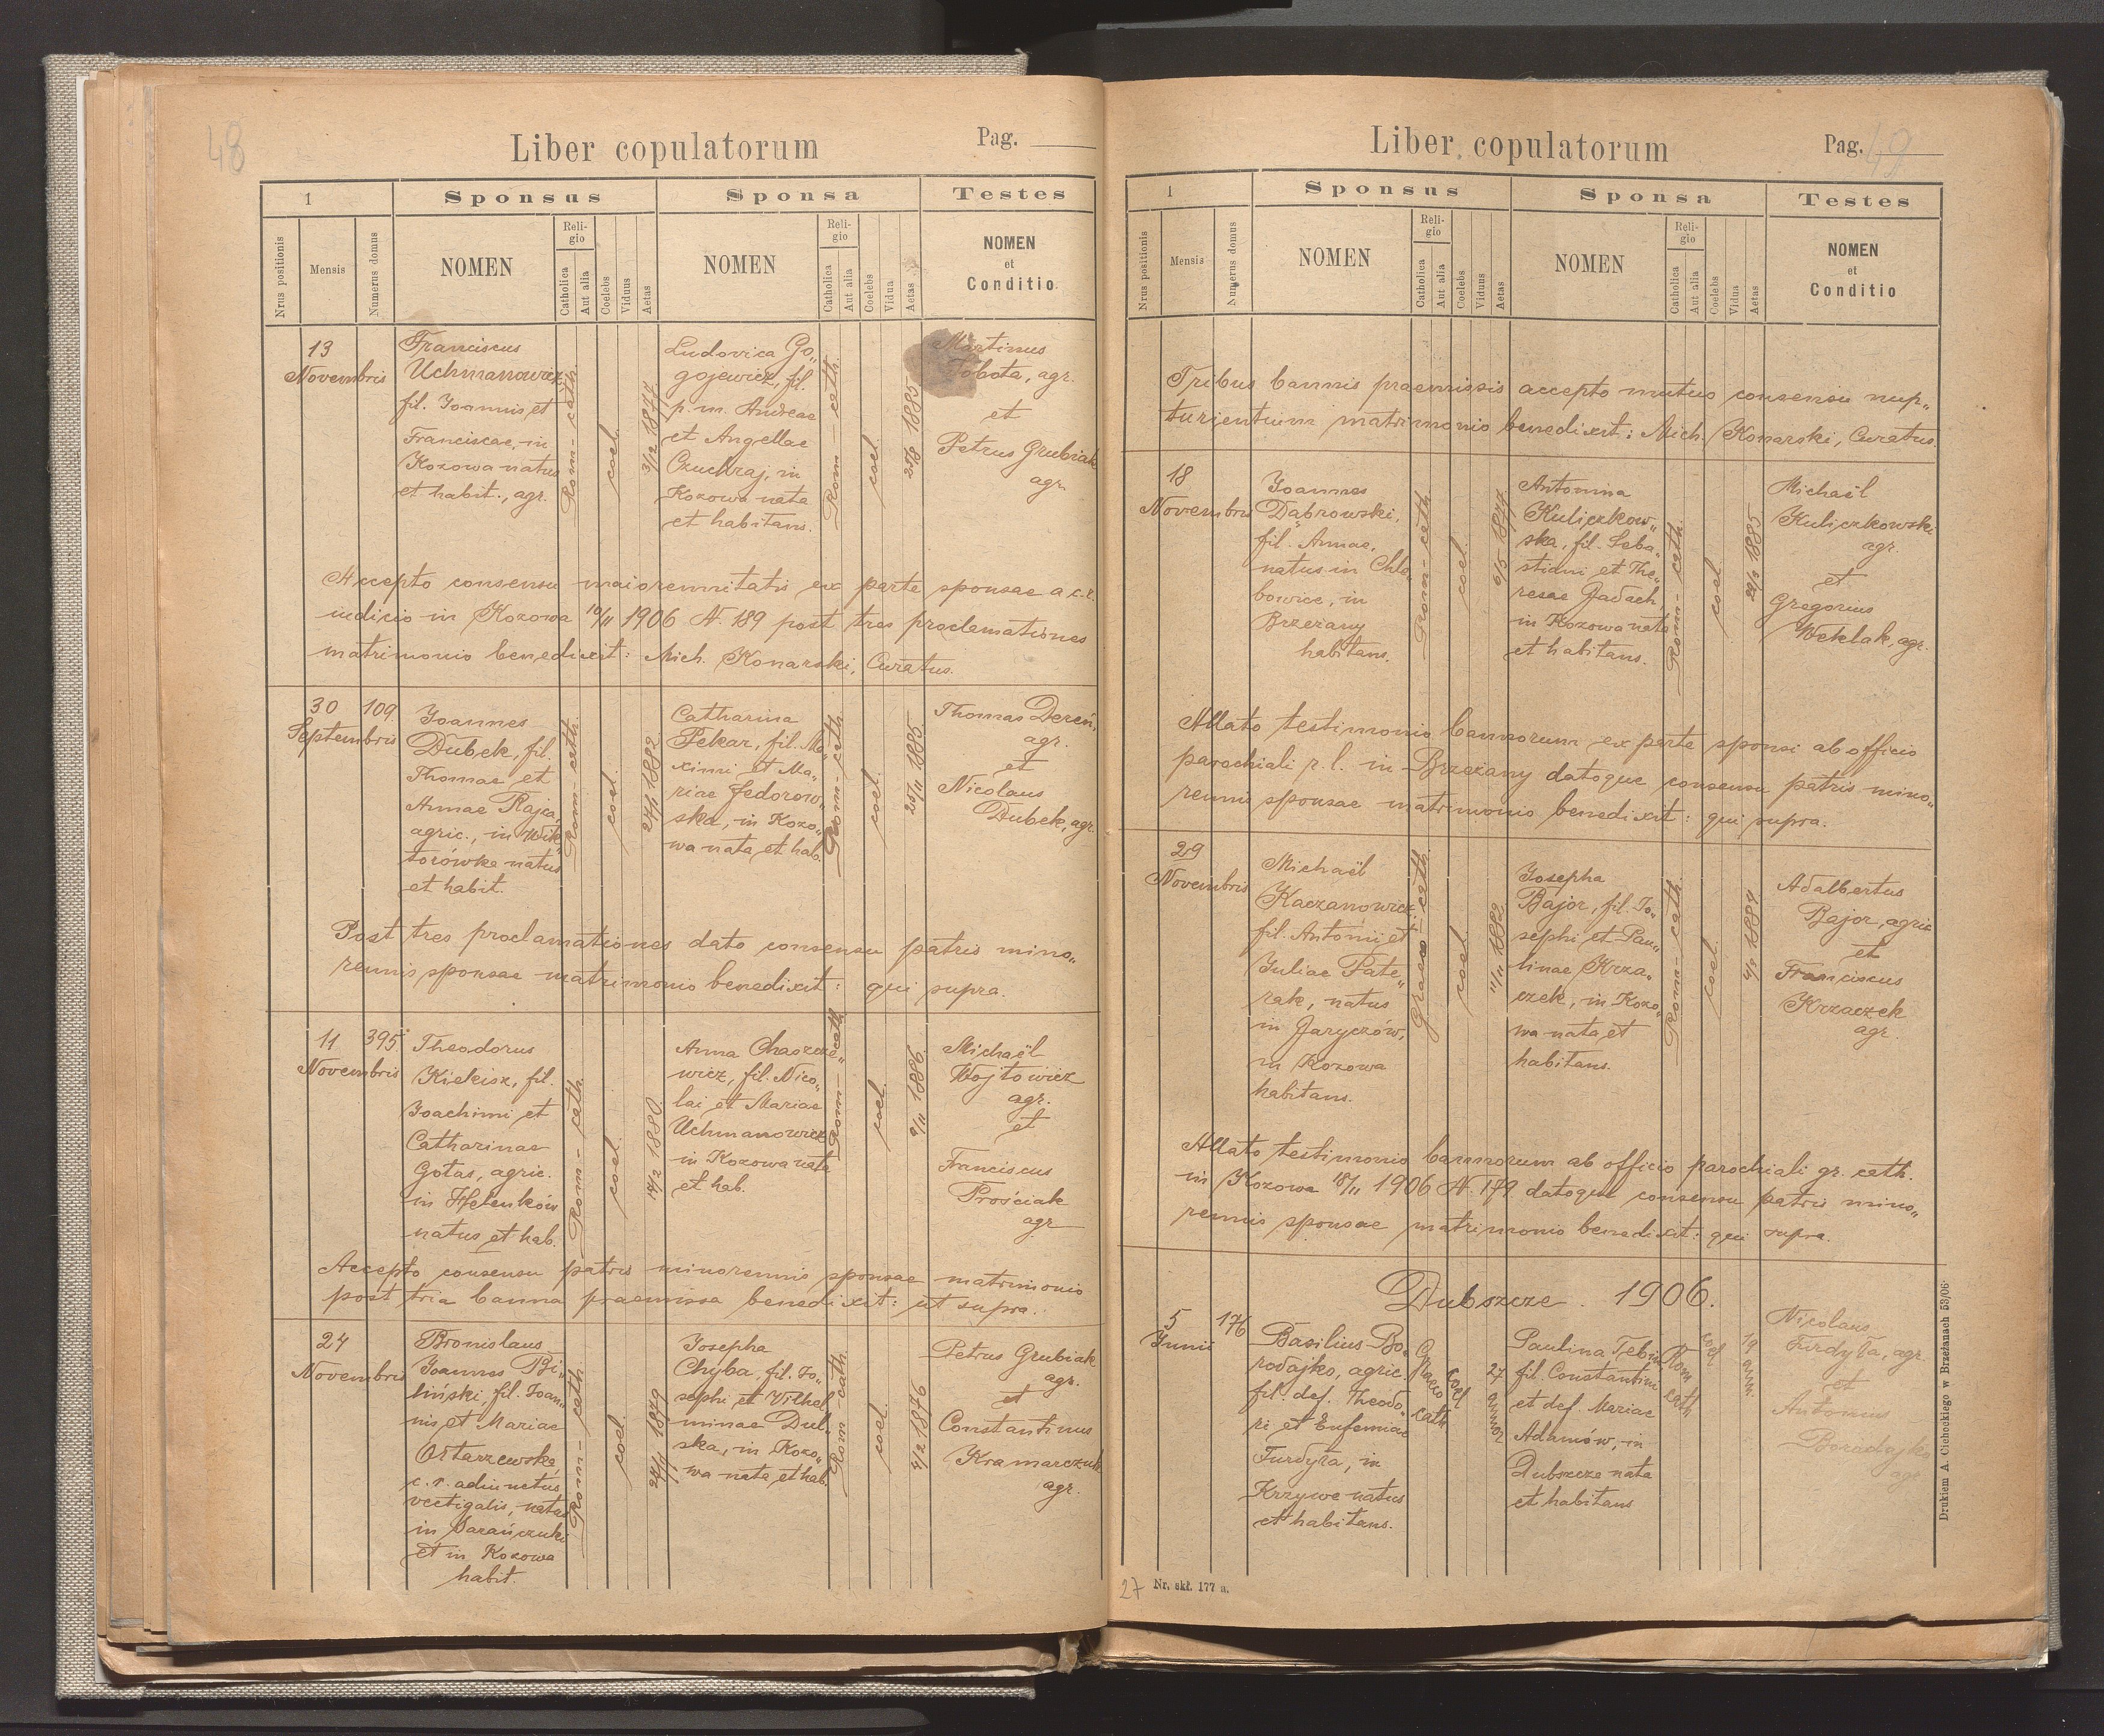 48
Liber copulatorum
Pag.
1
Sponsus
Sponsa
Testes
Nrus positionis
Mensis
Numerus domus
NOMEN
Religio
Catholica
Aut alia
Coelebs
Viduus
Aetas
NOMEN
Religio
Catholica
Aut alia
Coelebs
Vidua
Aetas
NOMEN
et
Conditio
13
Novembris
Franciscus
Uchmanowicz,
fil. Joannis et
Franciscae, in
Kozowa natus
et habit., agr.
Rom - cath.
coel.
3/12 1877
Ludovica Go„
gojewicz, fil.
p. m. Andreae
et Angellae
Czuchraj, in
Kozowa nata
et habitans.
Rom - cath.
coel.
25/8 1885
Martinus
Sobota, agr.
et
Petrus Grubiak
agr.
Accepto consensu maiorennitatis ex parte sponsae a c. r.
iudicio in Kozowa 10/11 1906 N. 189 post tres proclamationes
matrimonio benedixit: Mich. Konarski, Curatus.
30
Septembris
109.
Joannes
Dubek, fil.
Thomae et
Annae Rajca,
agric., in Wik„
torówka natus
et habit.
Rom - cath.
coel.
24/1 1882
Catharina
Pekar, fil. Ma„
ximi et Ma„
riae Fedorow„
ska, in Kozo„
wa nata et hab.
Rom - cath.
coel.
25/11 1885
Thomas Dereń,
agr.
et
Nicolaus
Dubek, agr.
Post tres proclamationes dato consensu patris mino„
rennis sponsae matrimonio benedixit: qui supra.
11
Novembris
395.
Theodorus
Kiekisz, fil.
Joachimi et
Catharinae
Gotas, agric.
in Helenków
natus et hab.
Rom - cath.
coel.
14/2 1880
Anna Chaszcze„
wicz, fil. Nico„
lai et Mariae
Uchmanowicz
in Kozowa nata
et hab.
Rom - cath
coel.
9/11 1886
Michaël
Wojtowicz
agr.
et
Franciscus
Prościak
agr.
Accepto consensu patris minorennis sponsae matrimonio
post tria banna praemissa benedixit: ut supra.
24
Novembris
Bronislaus
Joannes Bi„
liński, fil. Joan„
nis et Mariae
Ostarzewska,
c. r. adiunctus
vectigalis, natus
in Sarańczuki
et in Kozowa
habit.
Rom - cath
coel.
24/1 1879
Josepha
Chyba, fil. Jo„
sephi et Vilhel„
minae Dul„
ska, in Kozo„
wa nata et hab.
Rom - cath
coel.
4/2 1876
Petrus Grubiak
agr.
et
Constantinus
Kramarczuk
agr.
Liber copulatorum
Pag. 49
1
Sponsus
Sponsa
Testes
Nrus positionis
Mensis
Numerus domus
NOMEN
Religio
Catholica
Aut alia
Coelebs
Viduus
Aetas
NOMEN
Religio
Catholica
Aut alia
Coelebs
Vidua
Aetas
NOMEN
et
Conditio
Tribus bannis praemissis accepto mutuo consensu nup„
turientium matrimonio benedixit: Mich. Konarski, Curatus.
18
Novembris
Joannes
Dąbrowski,
fil. Annae,
natus in Chle„
bowice, in
Brzeżany
habitans.
Rom - cath
coel.
6/5 1877
Antonina
Kuliczkow„
ska, fil. Seba„
stiani et The„
resae Jadach,
in Kozowa nata
et habitans.
Rom - cath.
coel.
Michaël
Kuliczkowski
agr.
et
Gregorius
Weklak, agr.
Allato testimonio bannorum ex parte sponsi ab officio
parochiali r. l. in Brzeżany datoque consensu patris mino„
rennis sponsae matrimonio benedixit: qui supra.
29
Novembris
Michaël
Kaczanowicz,
fil. Antonii et
Juliae Pate„
rak, natus
in Jaryczów,
in Kozowa
habitans.
Graeco - cath.
coel.
11/11 1882
Josepha
Bajor, fil. Jo„
sephi et Pau„
linae Krza„
czek, in Kozo„
wa nata et
habitans.
Rom - cath.
coel.
Adalbertus
Bajor, agric
et
Franciscus
Krzaczek
agr.
Allato testimonio bannorum ab officio parochiali gr. cath.
in Kozowa 18/11 1906 N. 179. datoque consensu patris mino„
rennis sponsae matrimonio benedixit: qui supra.
Dubszcze. 1906.
5
Junii
176
Basilius Bo„
rodajko, agric.
fil. def. Theodo„
ri et Eufemiae
Furdyła, in
Krzywe natus
et habitans.
Graeco
cath
coel
27
annor
Paulina Tebin
fil. Constantini
et def. Mariae
Adamów, in
Dubszcze nata
et habitans
Rom
cath
coel
19
ann.
Nicolaus
Furdyła, agr.
et
Antonius
Borodajko
agr.
27
Nr. skł. 177 a.
Drukiem A. Cichockiego w Brzeżanach 53/06